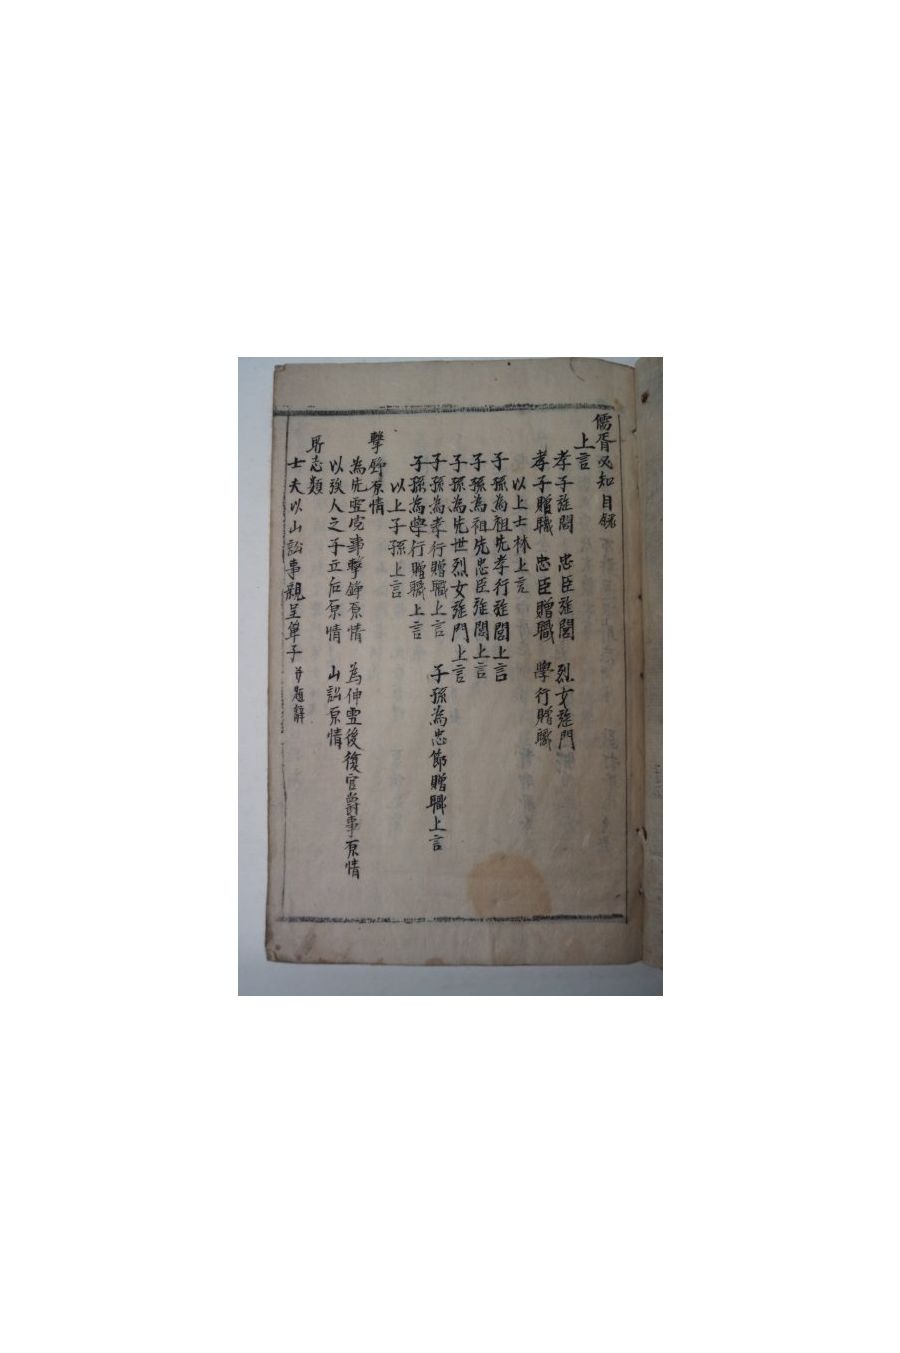 儒胥必知目錄
上言
孝子旌閭 忠臣旌閭 烈女旌門
孝子贈職 忠臣贈職 學行贈職
以上士林上言
子孫為祖先孝行旌閭上言
子孫為祖先忠臣旌閭上言
子孫為先世烈女旌門上言
子孫為孝行贈職上言 子孫為忠節贈職上言
子孫為學行贈職上言
以上子孫上言
擊錚原情
為先雪冤事擊錚原情 為伸雪後復官爵事原情
以後人之子立后原情 山訟原情
所志類
士夫以山訟事親呈單子 並題辭